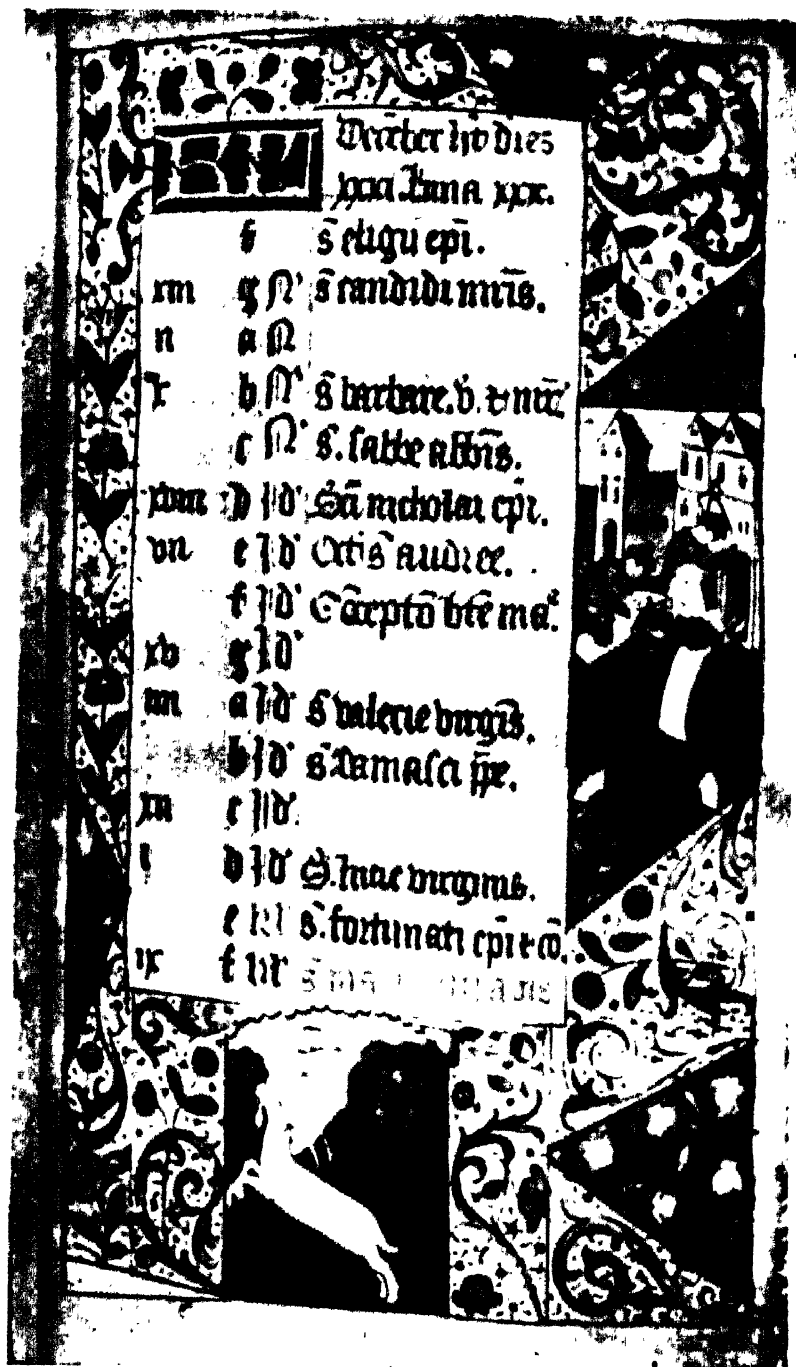 KL Decēber hꝫ dies
xxxi Luna xxx.
f s̄ eligii ep̄i.
xiii g N̄ s̄ candidi mr̄is.
ii a N̄
x b N̄ s̄ barbare. v. et mr̄
c N̄ s̄. sabbe abb̄is.
xviii d Id' Sc̄i nicholai ep̄i.
vii e Id' Oct̄is andree.
f Id' Cōcept̄o bt̄e ma.
xv g Id'
iiii a Id' s̄ valerie virgis̄.
b Id' s̄ damasci pp̄e.
xii c Id'.
i d Id' S̄. lucie virginis.
e kl s̄. fortunati ep̄i et cō.
ix f kl s̄